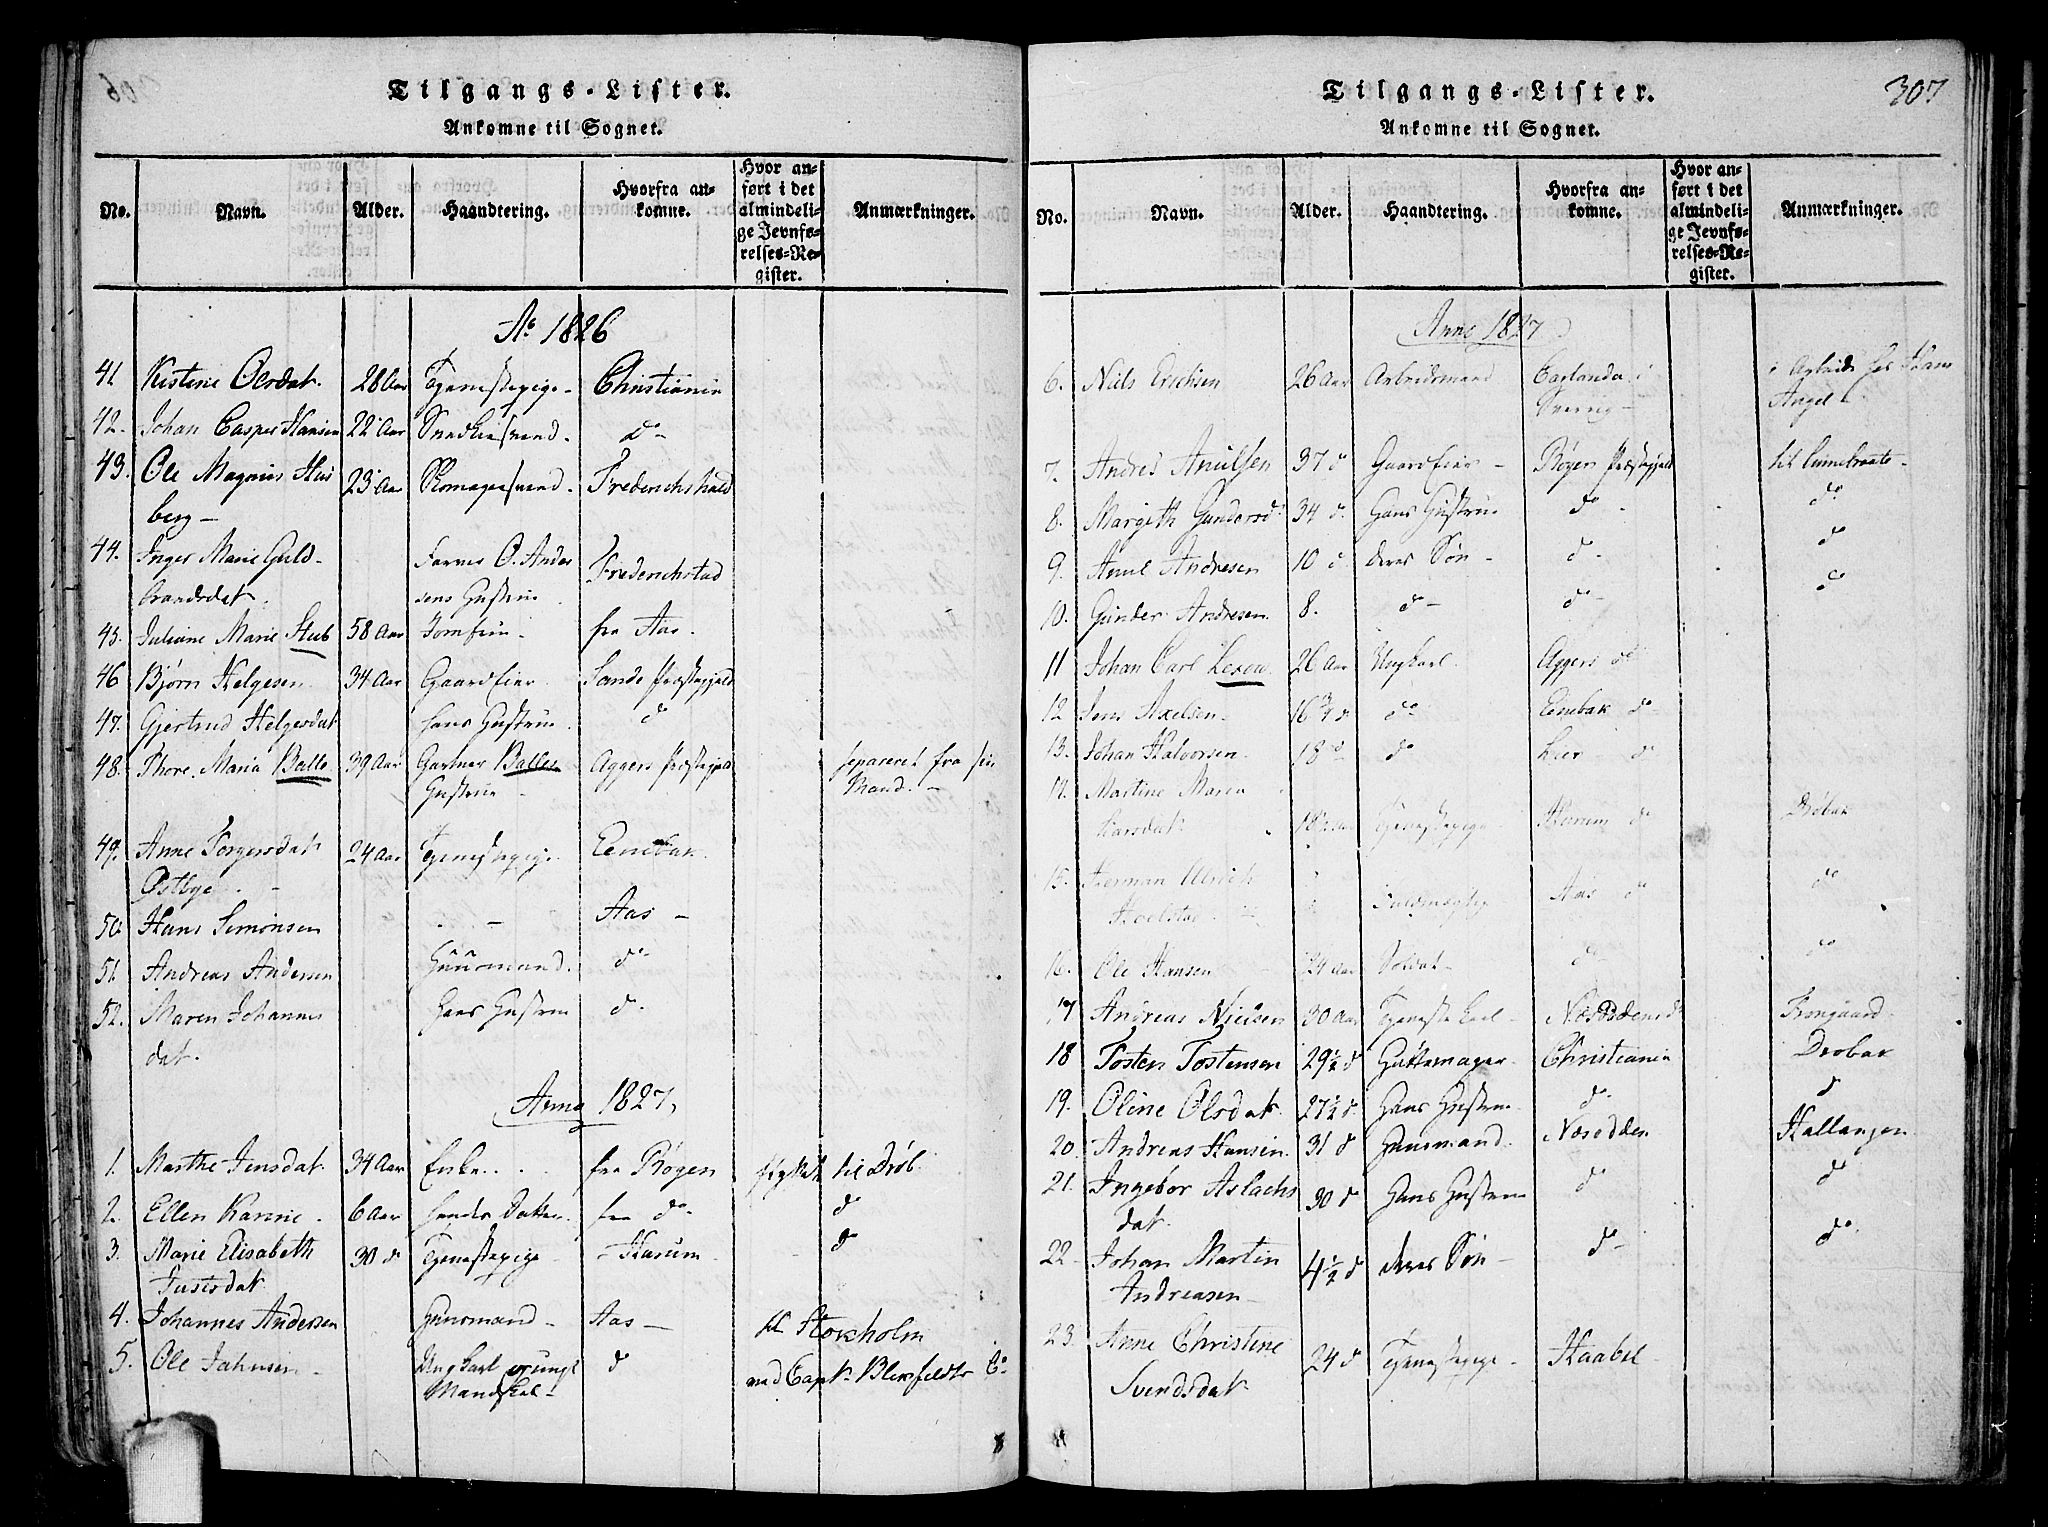 Tilgangs-Lister.
Ankomne til Sognet.
No. Navn. Alder. Haandtering. Hvorfra ankomne. Hvor anført i det almindelige Jevnførelses-Register. Anmærkninger.
Ao 1826
41 Kistine Olsdat. 28 Aar Tjenestepige- Christiania
42. Johan Casper Hansen 22 Aar Snedkersvend. do-
43. Ole Magnus Hus 23 Aar Skomagersvend. Frederichshald
berg-
44. Inger Marie Guld- Farver O. Ander Frederichstad
brandsdat. sens Hustrue
45. Juliane Marie Stub 58 Aar Jomfru. fra Aas.
46 Bjørn Helgesen 34 Aar Gaardeier. Sande Præstegjeld
47. Gjertrud Helgesdat hans Hustrue. do
48. Thore Maria Balle 39 Aar Gartner Balles Aggers Præstegjeld separeret fra sin
Hustrue - Mand. -
49. Anne Torgersdat 24 Aar Tjenestepige. Eenebak.
Østbye. -
50. Hans Simonsen - Aas -
51. Andreas Andersen Huusmand. do-
52. Maren Johannes hans Hustrue do-
dat.
Anno 1827,
1. Marthe Jensdat. 34 Aar Enke.. fra Røgen flyttet til Drøb.
2. Ellen Karine. 6 Aar hendes Datter. fra do- do
3. Marie Elisabeth 30 do Tjenestepige - Hurum - do
Justsdat
4. Johannes Andersen Huusmand- Aas - til Stokholm
5. Ole Jahnsen- Ungkarl og ungt do med Capt. Blixfeldts Co
Mandskab-
Tilgangs-Lister. 307
Ankomne til Sognet.
No. Navn. Alder. Haandtering. Hvorfra ankomne. Hvor anført i det almindelige Jevnførelses-Register. Anmærkninger.
Anno 1827
6. Niels Erichsen 26 Aar Arbeidsmand Carlanda i i Arbeide hos Hans
Sverrig- Angel
7. Andres Anulsen 37 do Gaardeier - Røgen Præstegjeld til
8. Margith Gundersd. 34 do. Hans Hustrue do - do
9. Anul Andresen 10 do deres Søn - do - do
10. Gunder Andresen 8. do- do- do
11 Johan Carl Lexow 26 Aar Ungkarl. Aggers do
12 Jens Axelsen. 16 3/4 do do- Eenebak do-
13. Johan Halvorsen. 18 do do Lier do
14. Martine Maren
Larsdat. 18½ Aar Tjenestepige Hurum do Drøbak
15. Herman Ulrich
Hoelstad Aas do do
16. Ole Hansen 24 Aar Soldat- do- do
17 Andreas Nielsen 30 Aar Tjenestekarl- Næsoddens do Frongaard-
18 Tosten Tostensen 29½ do Hattemager- Christiania Drøbak
19. Oline Olsdat. 27½ do. Hans Hustrue do- do
20. Andreas Hansen. 31 do Huusmand. Næsodden Hallangen
21. Ingebor Aslachs 30 do Hans Hustrue do do
dat.
22 Johan Martin 4½ do deres Søn- do- do.
Andreasen-
23. Anne Christine 24 do Tjenestepige- Haabøl-
Svendsdat